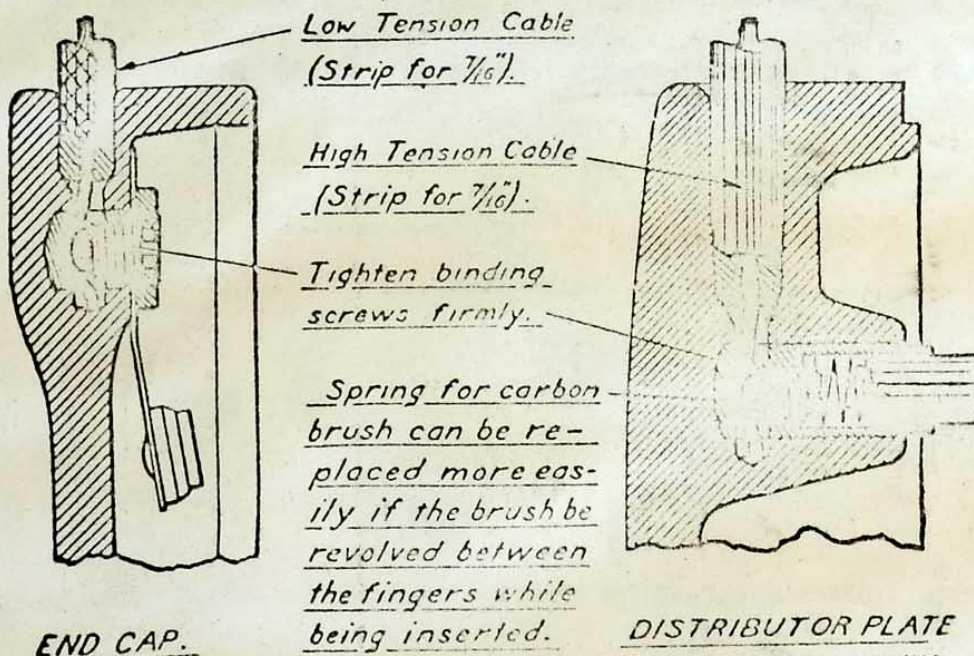 Low Tension Cable
(Strip for 7/16").
High Tension Cable
(Strip for 7/16").
Tighten binding
screws firmly.
Spring for carbon
brush can be re-
placed more eas-
ily if the brush be
revolved between
the fingers while
being inserted.
END CAP.
DISTRIBUTOR PLATE